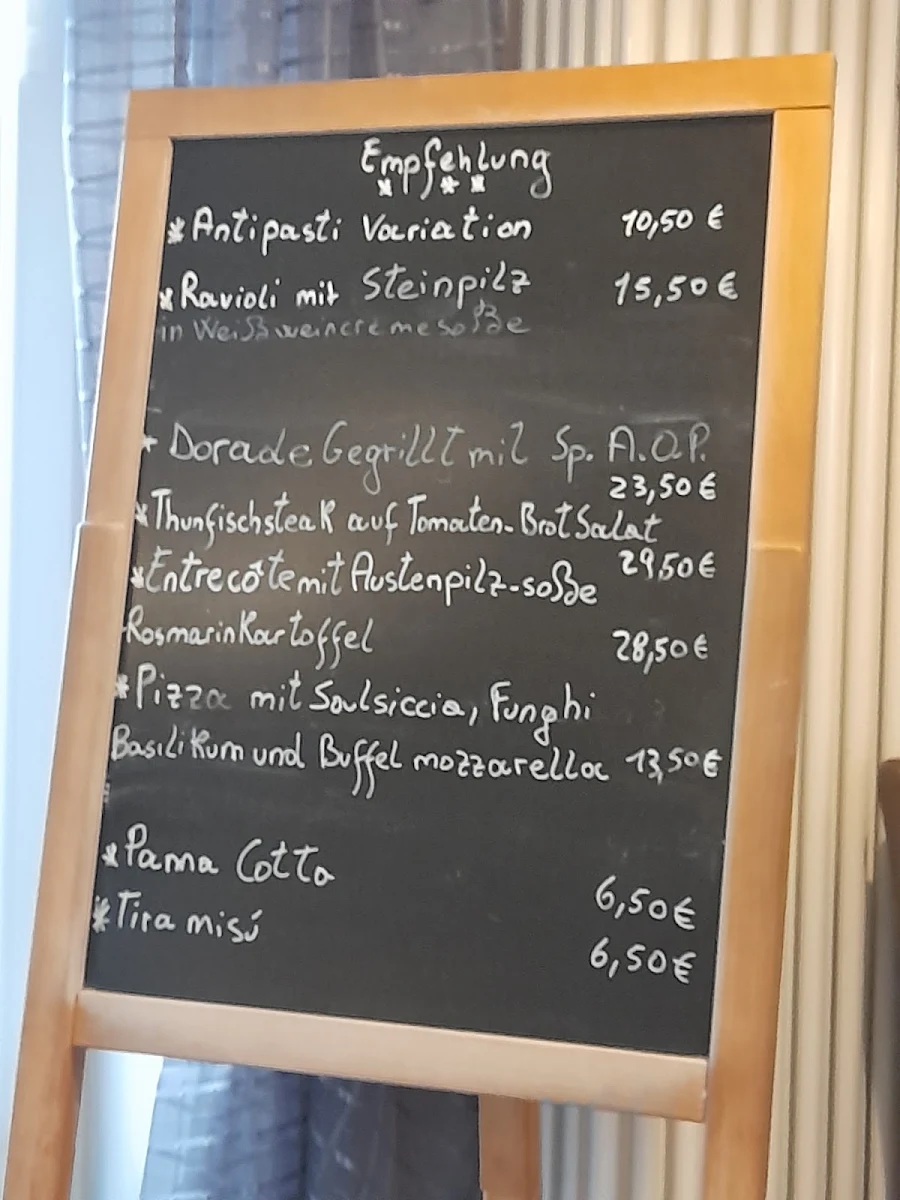 Empfehlung
* * *
* Antipasti Variation 10,50 €
* Ravioli mit Steinpilz 15,50 €
in Weißweincremesoße
* Dorade Gegrillt mit Sp. A.O.P.
23,50 €
* Thunfischsteak auf Tomaten-Brot Salat
29,50 €
* Entrecôte mit Austenpilz-soße
Rosmarin Kartoffel 28,50 €
* Pizza mit Salsiccia, Funghi
Basilikum und Buffel mozzarella 13,50 €
* Panna Cotta 6,50 €
* Tira misú 6,50 €